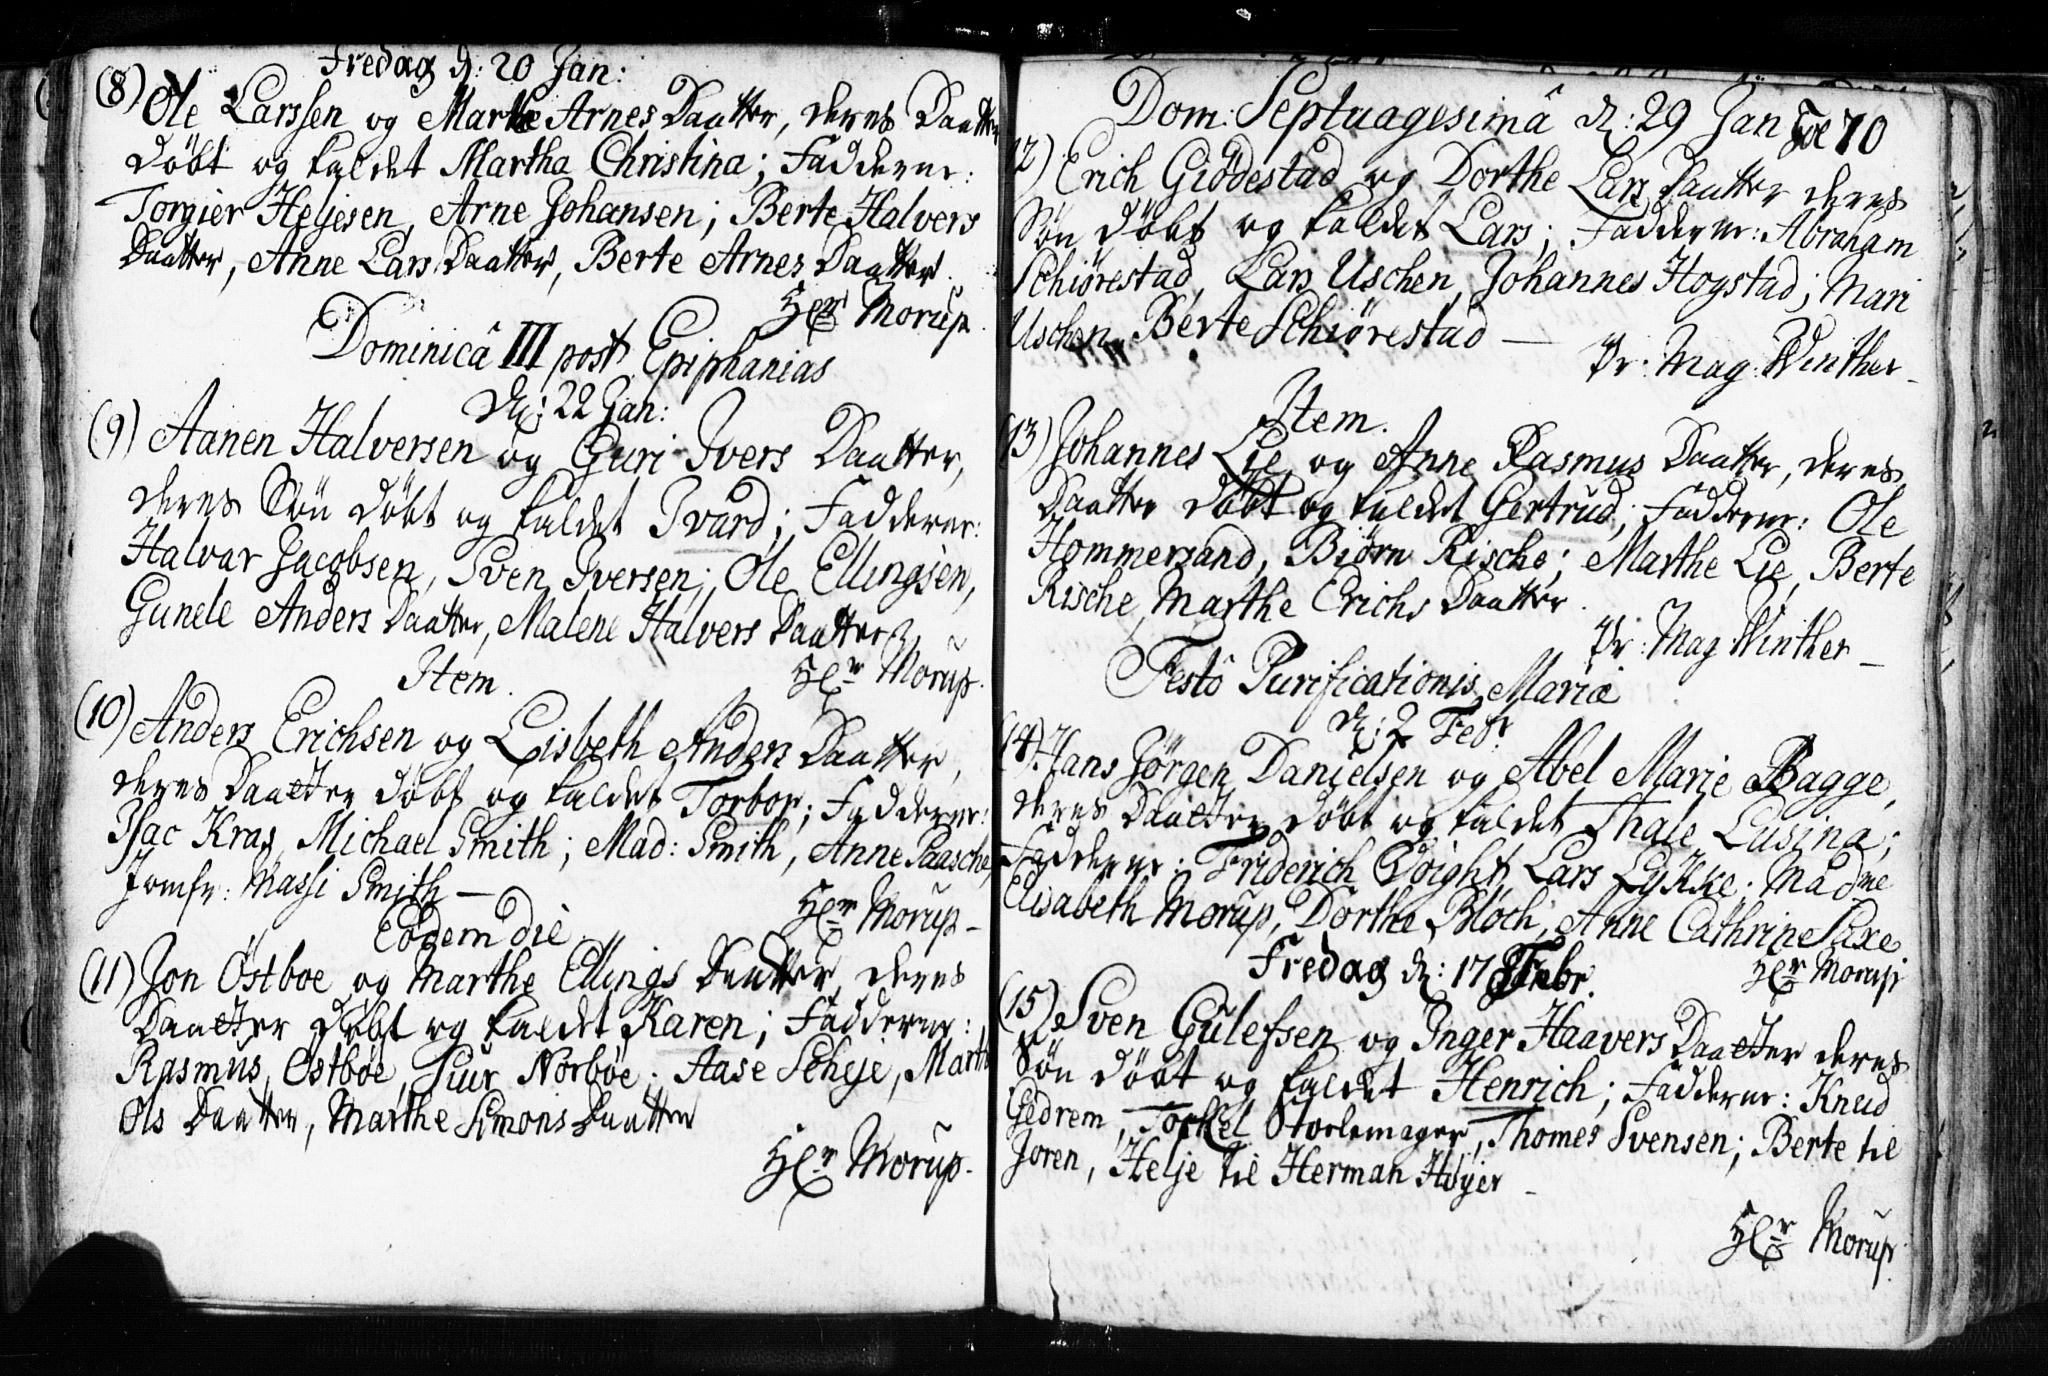 Fredag d: 20 Jan:
(8) Ole Larssen og Marthe Arnes Daatter, deres Daatter
døbt og kaldet Martha Christina; Fadderne:
Torgier Heljesen, Arne Johansen; Berte Halvers
Daatter, Anne Lars Daatter, Berte Arnes Daatter.
Hr Morup.
Dominicâ III post Epiphanias
d: 22 Jan:
(9) Aanen Halversen og Guri Ivers Daatter,
deres Søn døbt og kaldet Ivard; Fadderne:
Halvar Jacobsen, Sven Iversen; Ole Ellingsen,
Gunele Anders Daatter, Malene Halvers Daatter
Hr Morup.
Item.
(10) Anders Erichsen og Lisbeth Anders Daatter,
deres Daatter døbt og kaldet Torbor; Fadderne:
Isac Krag, Michael Smith; Mad: Smith, Anne Paasche,
Jomfr: Massi Smith —
Hr Morup –
Eodem die.
(11) Jon Østboe og Marthe Ellings Daatter, deres
Daatter døbt og kaldet Karen; Fadderne:
Rasmus Østbøe, Siur Norbøe; Aase Scheje, Marthe
Ols Daatter, Marthe Simons Daatter
Hr Morup.
Dom: Septuagesimâ d: 29 Jan
Fol 70
12) Erich Giödestad og Dorthe Lars Daatter deres
Søn døbt og kaldet Lars; Fadderne: Abraham
Schiørestad, Lars Uschen, Johannes Hogstad; Mari
Uschen, Berte Schiørestad —
Pr: Mag: Winther –
Item.
(13) Johannes Lie og Anne Rasmus Daatter, deres
Daatter døbt og kaldet Gertrud; Fadderne: Ole
Hommersand, Biørn Rische; Marthe Lie, Berte
Rische, Marthe Erichs Daatter.
Pr: Mag Winther –
Festô Purificationis Mariæ
d: 2 Febr
(14) Hans Jørgen Danielsen og Abel Marie Bagge,
deres Daatter døbt og kaldet Thale Lusina;
Fadderne: Friderich Voight, Lars Lykke; Madme
Elisabeth Morup, Dorthe Bloch, Anne Cathrine Saxe
Hr Morup
Fredag d: 17 Febr.
(15) Sven Gulefsen og Inger Haavers Daatter deres
Søn døbt og kaldet Henrich; Fadderne: Knud
Gedrem, Torkel Stoelemager, Thomes Svensen; Berte til
Joren, Helje til Herman Høyer –
Hr Morup.